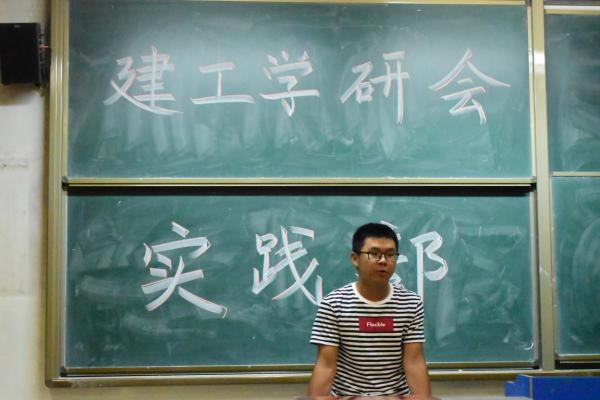 建工学研会
实践部
Flexible